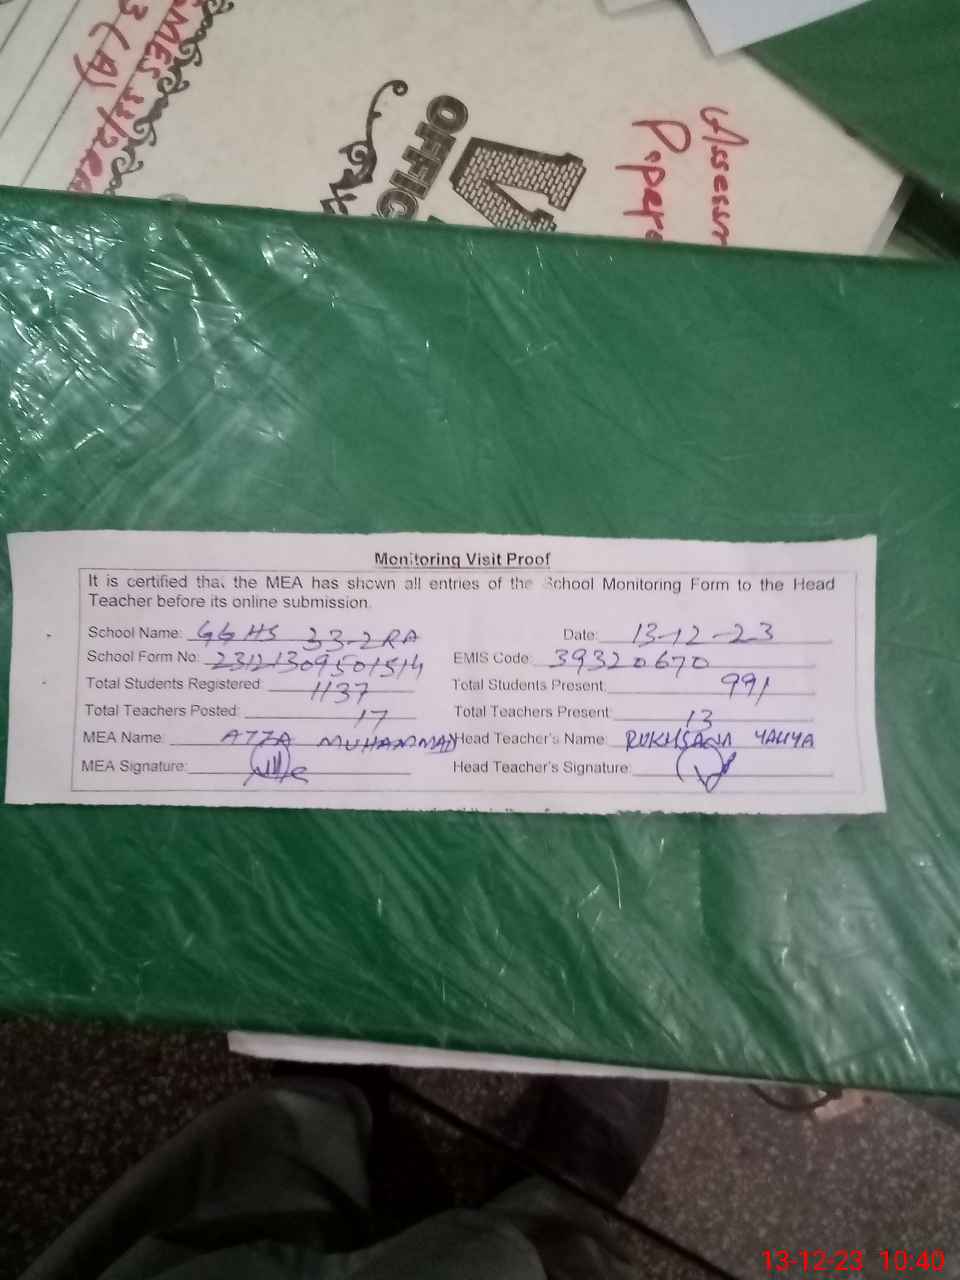 GMES 33/2RA
3 (A)
OFFIC
Assessm
Papers
Monitoring Visit Proof
It is certified that the MEA has shown all entries of the School Monitoring Form to the Head
Teacher before its online submission.
School Name: GGHS 33-2RA Date: 13-12-23
School Form No: 23121309501514 EMIS Code: 39320670
Total Students Registered: 1137 Total Students Present: 991
Total Teachers Posted: 17 Total Teachers Present: 13
MEA Name: ATTA MUHAMMAD Head Teacher's Name: RUKHSANA YAHYA
MEA Signature: Head Teacher's Signature:
13-12-23 10:40